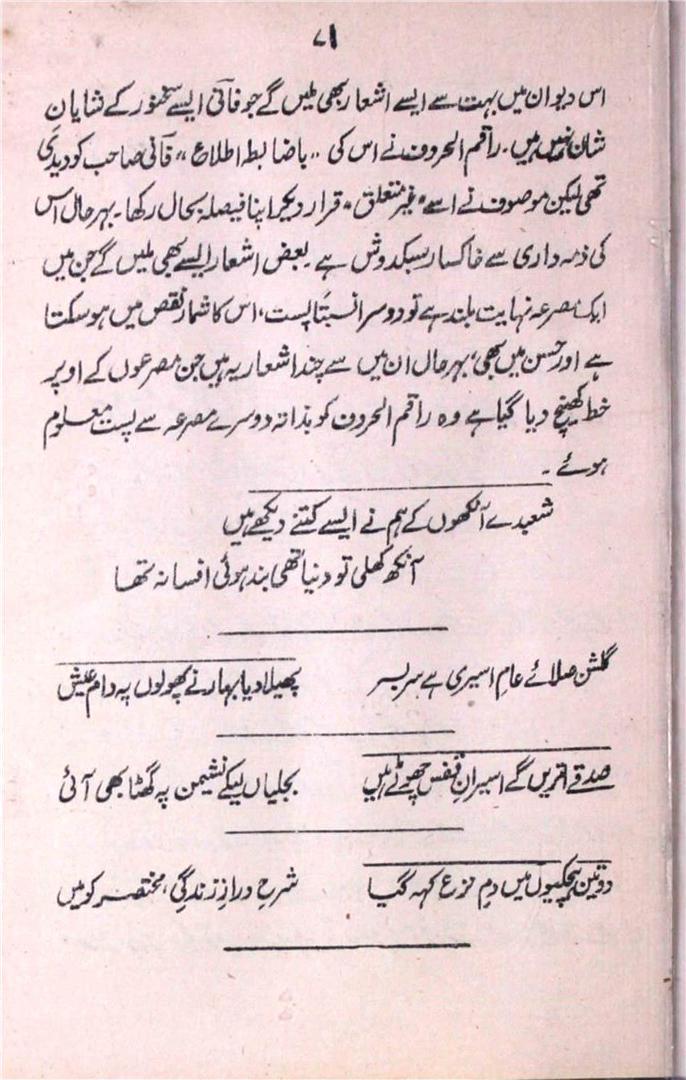 ۷۱
اس دیوان میں بہت سے ایسے اشعار بھی ملیں گے جو فانی ایسے سخنور کے شایان
شان نہیں ہیں۔ راقم الحروف نے اس کی "باضابطہ اطلاع" فانی صاحب کو دیدی
تھی لیکن موصوف نے اسے "غیر متعلق" قرار دیکر اپنا فیصلہ بحال رکھا۔ بہر حال اس
کی ذمہ داری سے خاکسار سبکدوش ہے۔ بعض اشعار ایسے بھی ملیں گے جن میں
ایک مصرعہ نہایت بلند ہے تو دوسرا نسبتاً پست، اس کا شمار نقص میں ہو سکتا
ہے اور حسن میں بھی، بہر حال ان میں سے چند اشعار یہ ہیں جن مصرعوں کے اوپر
خط کھینچ دیا گیا ہے وہ راقم الحروف کو بذاتہ دوسرے مصرعہ سے پست معلوم
ہوئے۔
شعبدے آنکھوں کے ہم نے ایسے کتنے دیکھے ہیں
آنکھ کھلی تو دنیا تھی بند ہوئی افسانہ تھا
گلشن صلائے عام اسیری ہے سر بسر پھیلا دیا بہار نے پھولوں پہ دام عیش
صدقے اتریں گے اسیرانِ قفس چھوٹے ہیں بجلیاں لیکے نشیمن پہ گھٹا بھی آئی
دو تین ہچکیوں میں دمِ نزع کہہ گیا شرحِ درازِ زندگیِ مختصر کو میں